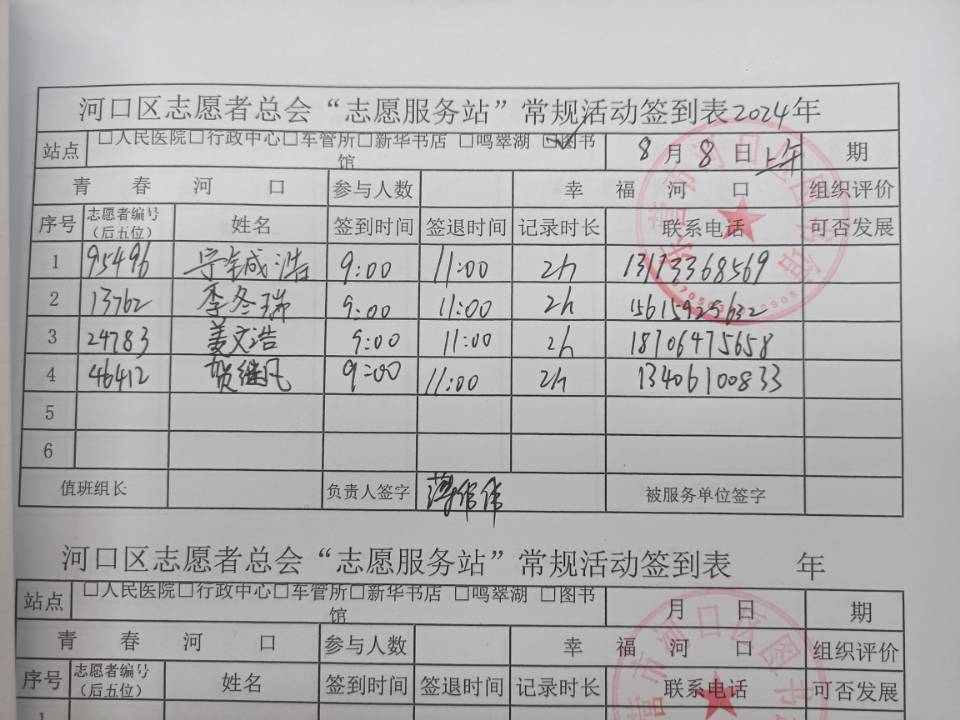 河口区志愿者总会“志愿服务站”常规活动签到表2024年
站点 □人民医院□行政中心□车管所□新华书店 □鸣翠湖 ☑图书馆 8月8日上午 期
青春河口 参与人数 幸福河口 组织评价
序号 志愿者编号（后五位） 姓名 签到时间 签退时间 记录时长 联系电话 可否发展
1 95496 宁铖浩 9:00 11:00 2h 13173368569
2 13762 李冬瑞 9:00 11:00 2h 15615925632
3 24783 姜文浩 9:00 11:00 2h 18706475658
4 46412 贺继凤 9:00 11:00 2h 13406100833
5
6
值班组长 负责人签字 被服务单位签字
河口区志愿者总会“志愿服务站”常规活动签到表 年
站点 □人民医院□行政中心□车管所□新华书店 □鸣翠湖 □图书馆 月 日 期
青春河口 参与人数 幸福河口 组织评价
序号 志愿者编号（后五位） 姓名 签到时间 签退时间 记录时长 联系电话 可否发展
1